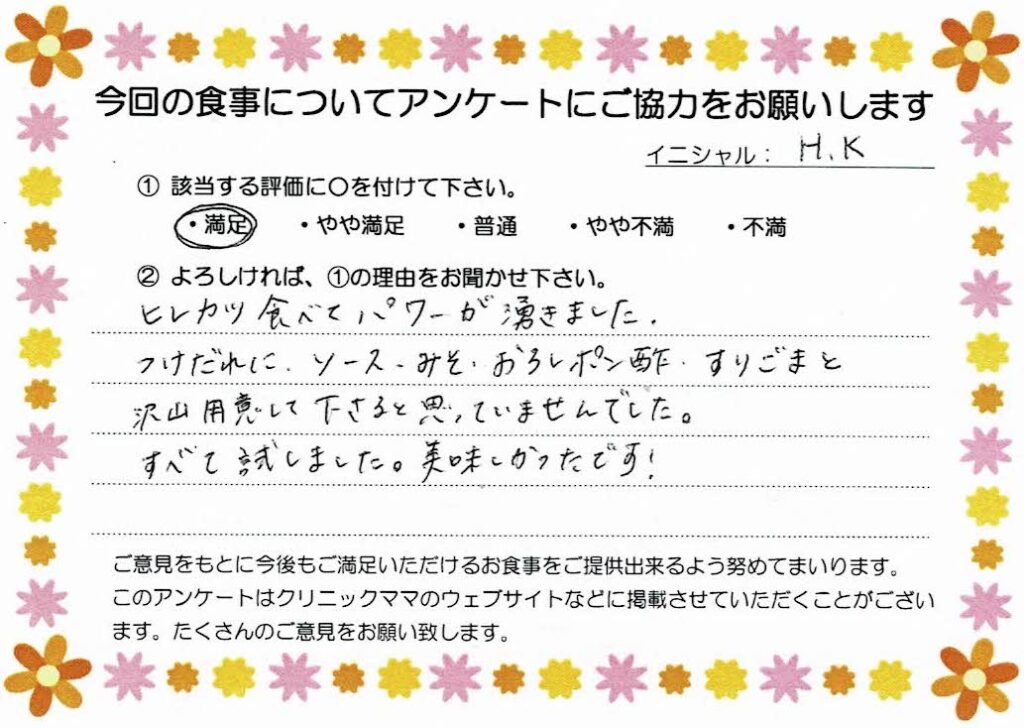 今回の食事についてアンケートにご協力をお願いします
イニシャル： H.K
① 該当する評価に〇を付けて下さい。
・満足 ・やや満足 ・普通 ・やや不満 ・不満
② よろしければ、①の理由をお聞かせ下さい。
ヒレカツ食べてパワーが湧きました.
つけだれに. ソース.みそ.おろしポン酢.すりごまと
沢山用意して下さると思っていませんでした。
すべて試しました。美味しかったです!
ご意見をもとに今後もご満足いただけるお食事をご提供出来るよう努めてまいります。
このアンケートはクリニックママのウェブサイトなどに掲載させていただくことがござい
ます。たくさんのご意見をお願い致します。